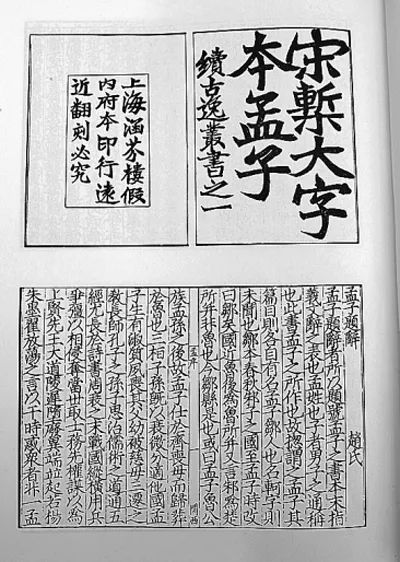 宋槧大字
本孟子
續古逸叢書之一
上海涵芬樓假
內府本印行遠
近翻刻必究
孟子題辭 趙氏
孟子題辭者所以題號孟子之書本末指
義文辭之表也孟姓也子者男子之通稱
也此書孟子之所作也故揔謂之孟子其
篇目則各自有名孟子鄒人也名軻字則
未聞也鄒本春秋邾子之國至孟子時改
曰鄒矣國近魯後為魯所并又言邾為楚
所并非魯也今鄒縣是也或曰孟子魯公
族孟孫之後故孟子仕於齊喪母而歸葬
於魯也三桓子孫既以衰微分適他國孟
子生有淑質夙喪其父幼被慈母三遷之
教長師孔子之孫子思治儒術之道通五
經尤長於詩書周衰之末戰國縱橫用兵
爭強以相侵奪當世取士務先權謀以為
上賢先王大道陵遲隳廢異端並起若楊
朱墨翟放蕩之言以干時惑衆者非一孟